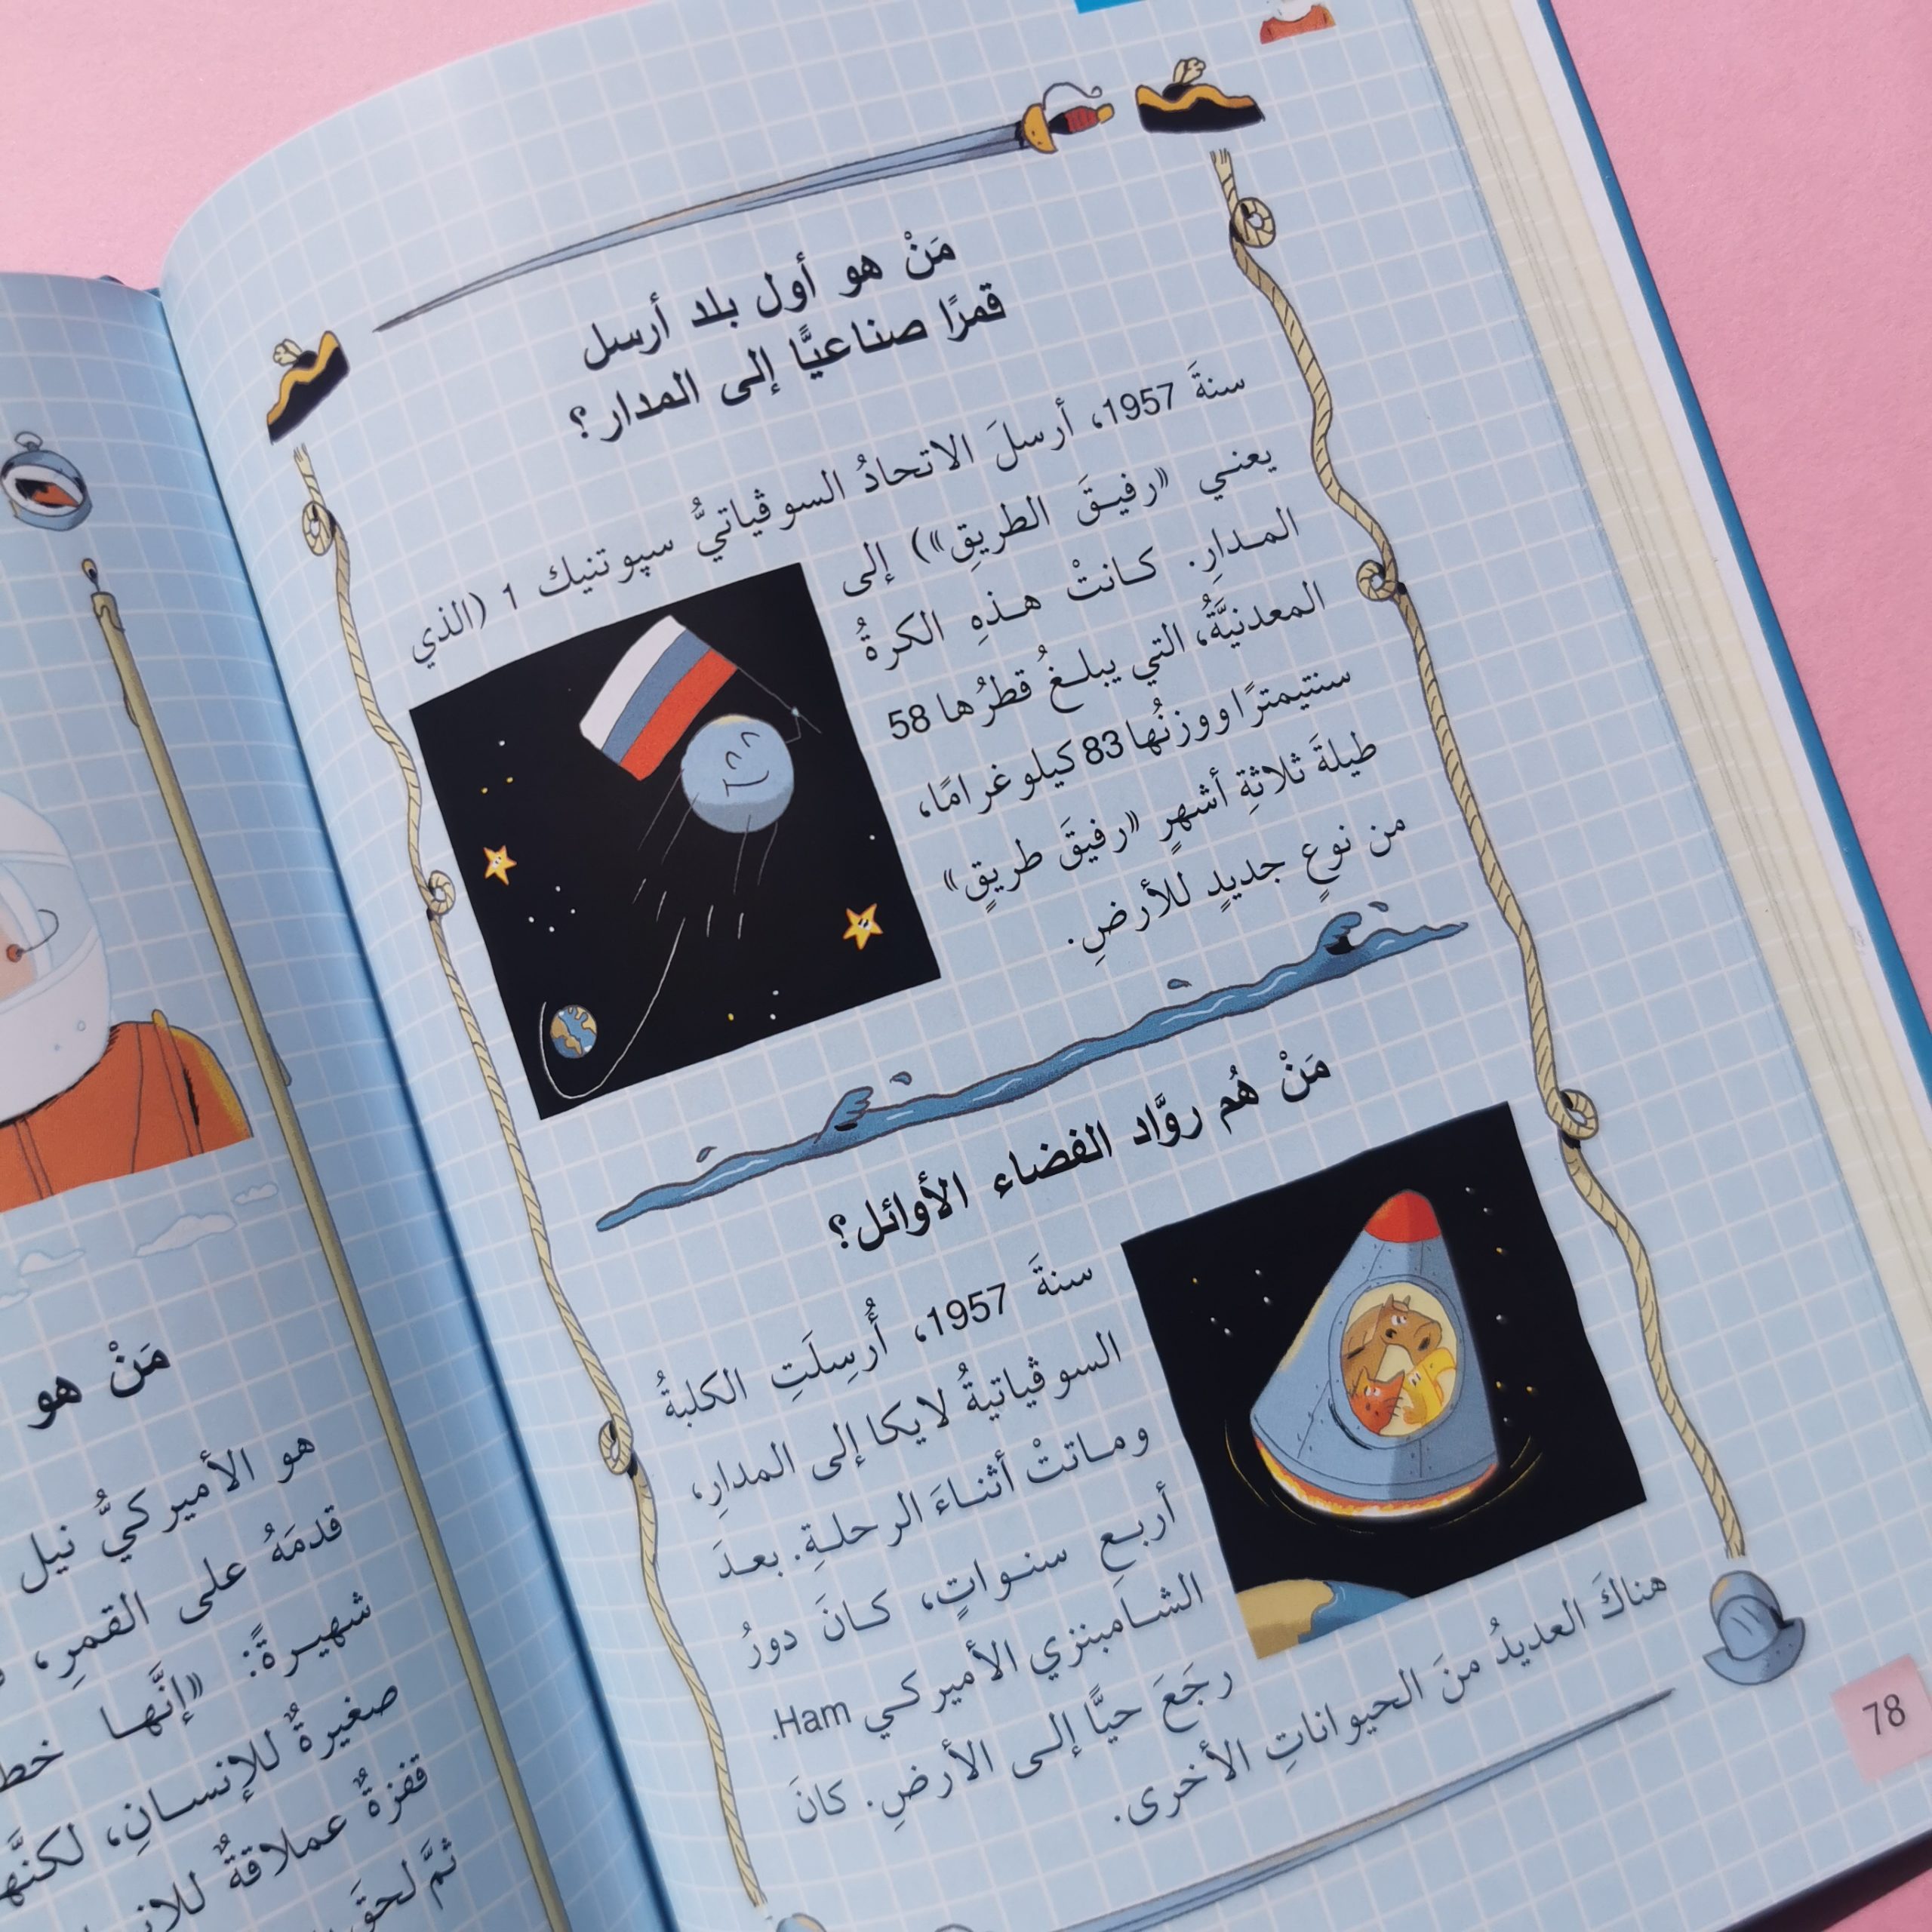 مَنْ هو أول بلد أرسل
قمرًا صناعيًّا إلى المدار؟
سنةَ 1957، أرسلَ الاتحادُ السوڤياتيُّ سپوتنيك 1 (الذي
يعنـي «رفيـقَ الطريقِ») إلى
المـدارِ. كـانتْ هـذهِ الكرةُ
المعدنيَّةُ، التي يبلـغُ قطرُها 58
سنتيمترًا ووزنُها 83 كيلوغرامًا،
طيلةَ ثلاثةِ أشهرٍ «رفيقَ طريقٍ»
من نوعٍ جديدٍ للأرضِ.
مَنْ هُم روَّاد الفضاء الأوائل؟
سنةَ 1957، أُرسِلَتِ الكلبةُ
السوڤياتيةُ لايكا إلى المدارِ،
ومـاتتْ أثنـاءَ الرحلـةِ. بعـدَ
أربـعِ سنـواتٍ، كـانَ دورُ
الشـامبنزي الأميركـي Ham.
رجَعَ حيًّا إلـى الأرضِ. كانَ
هناكَ العديدُ منَ الحيواناتِ الأخرى.
78
مَنْ هو
هو الأميركيُّ نيل
قدمَهُ على القمرِ،
شهيـرةً: «إنَّهـا
صغيرةٌ للإنسـانِ،
قفزةٌ عملاقةٌ
ثمَّ لحقَ